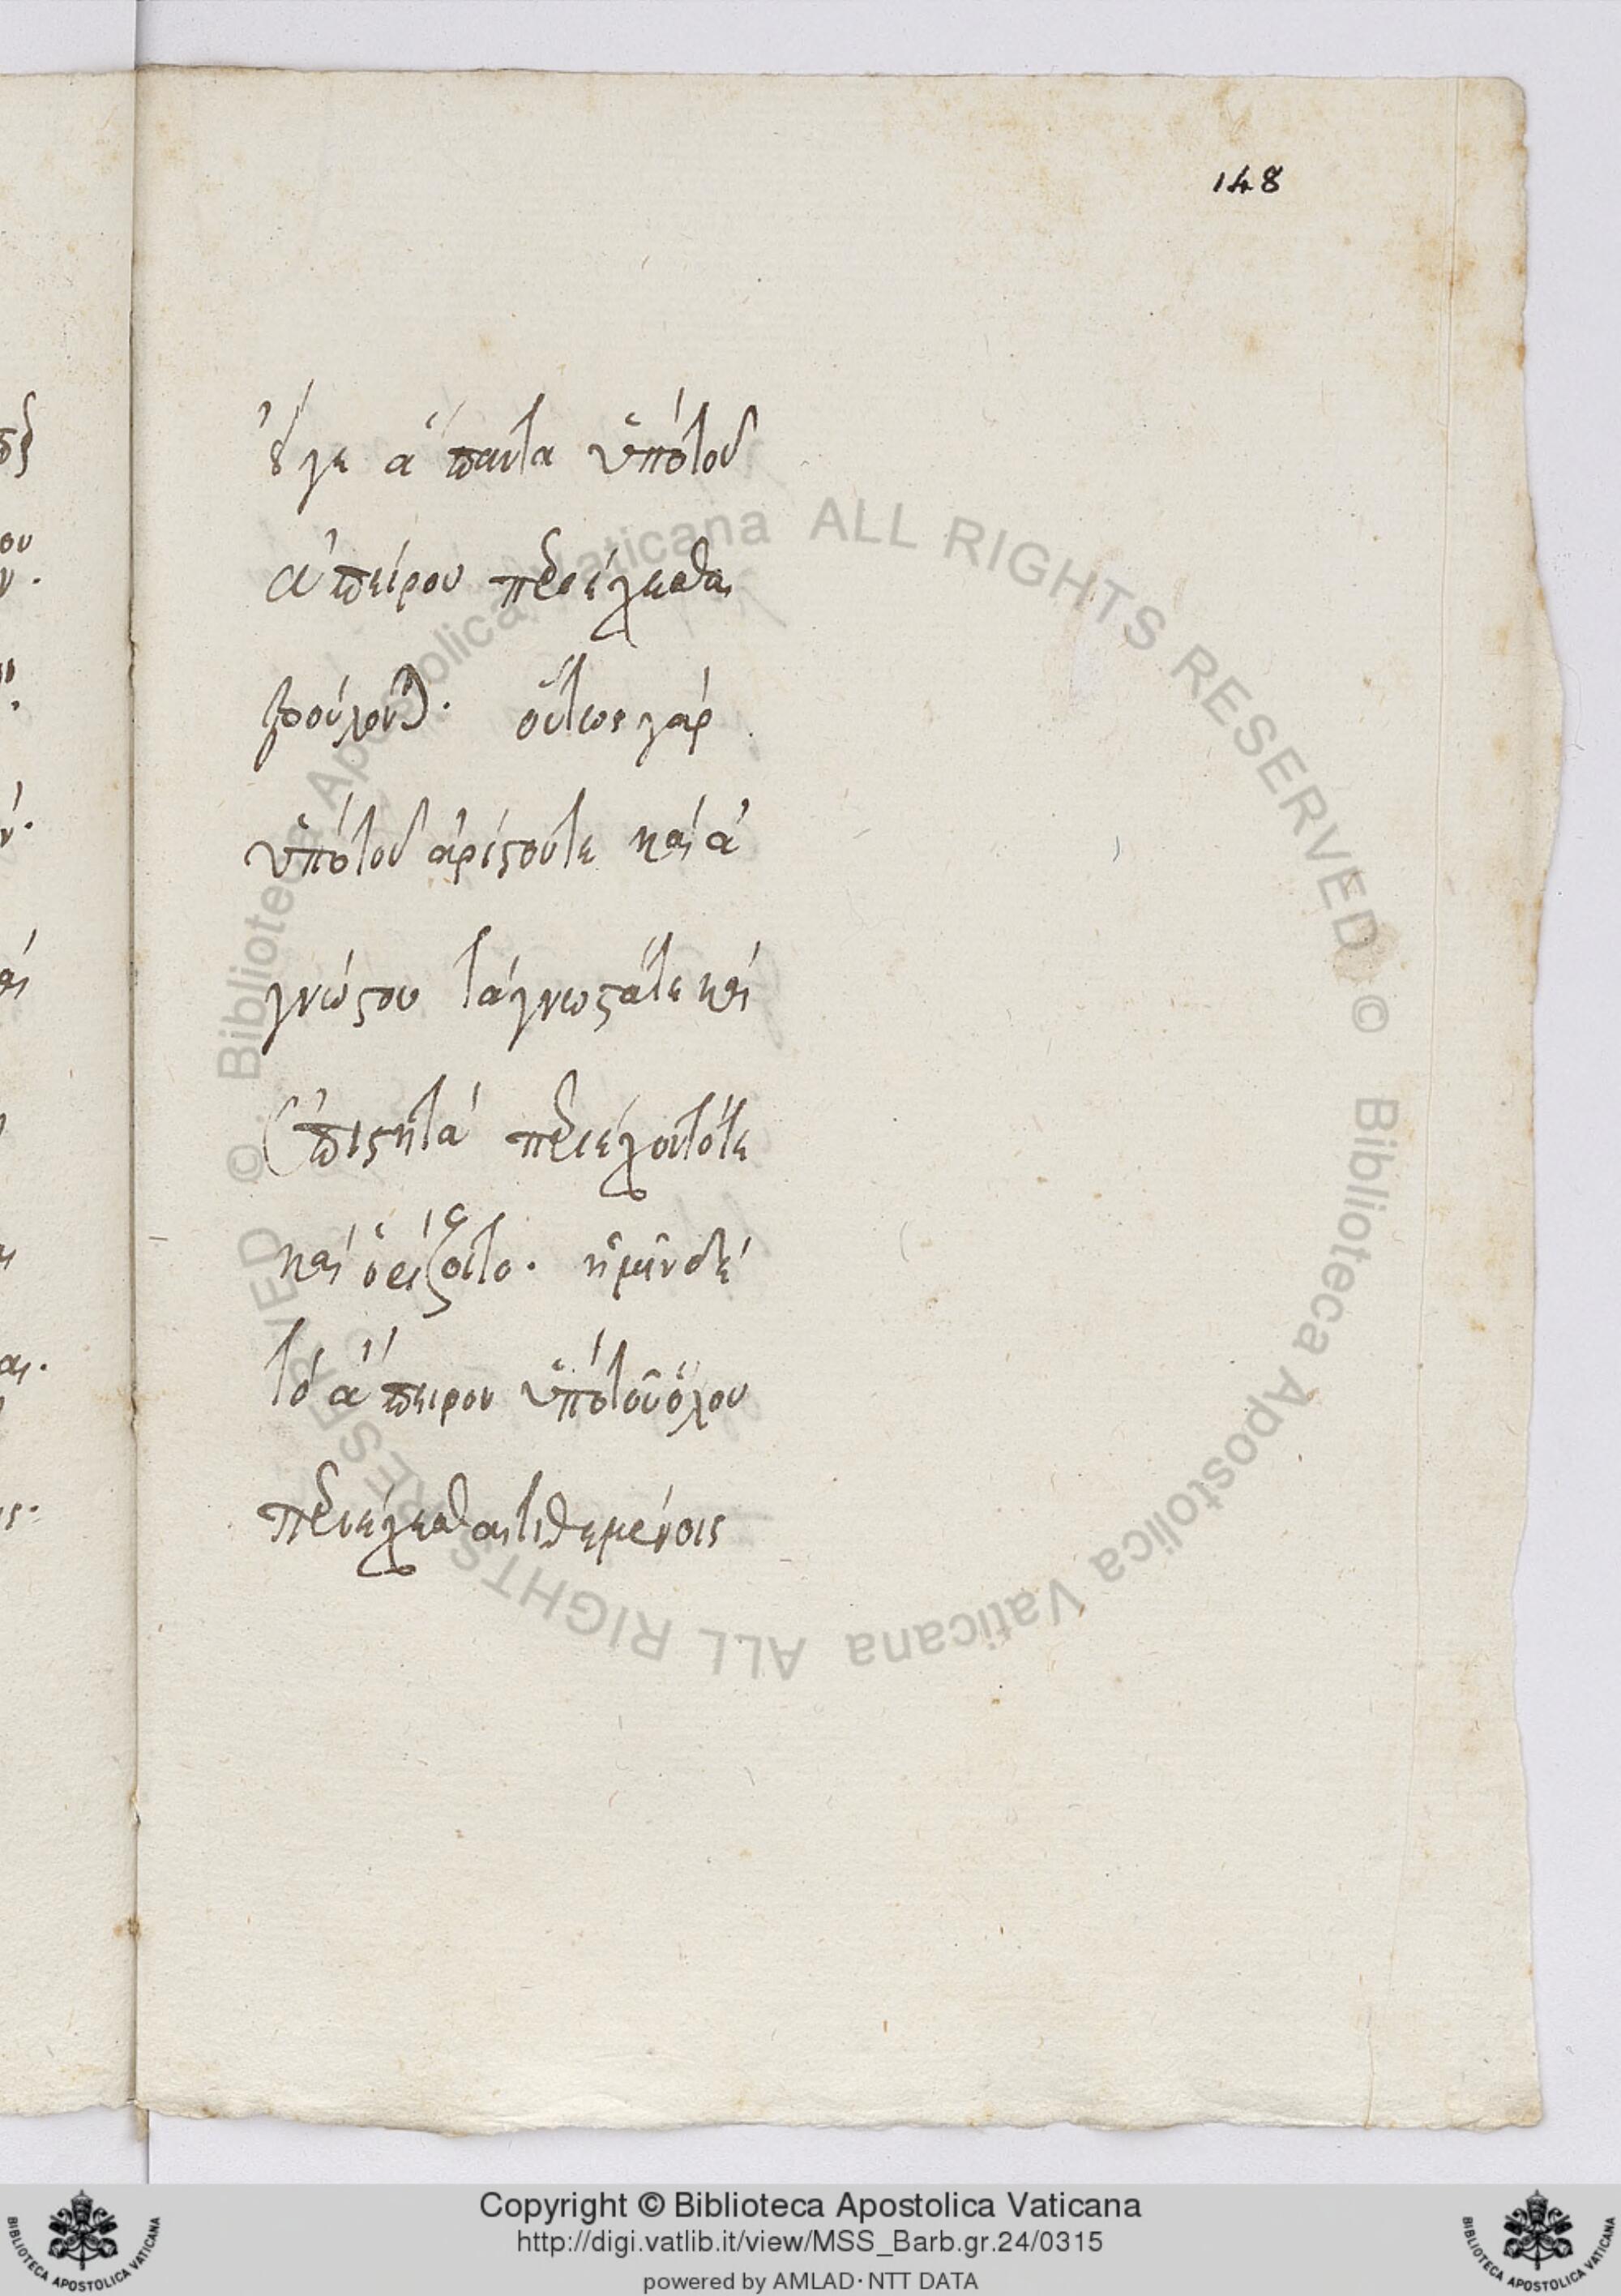 148
οὔγε ἅπαντα ὑπὸ τοῦ
ἀπείρου περιέχεσθαι
βούλονται. οὕτως γὰρ
ὑπὸ τοῦ ἀρίστου τε καὶ ἀ
γνώστου τὰ γνωστά τε καὶ
ἐπιστητὰ περιέχοιτό τε
καὶ ὁρίζοιτο. ἡμῖν δὲ
τὸ ἄπειρον ὑπὸ τοῦ ὅλου
περιέχεσθαι τιθεμένοις
© Biblioteca Apostolica Vaticana ALL RIGHTS RESERVED © Biblioteca Apostolica Vaticana ALL RIGHTS RESERVED
Copyright © Biblioteca Apostolica Vaticana
http://digi.vatlib.it/view/MSS_Barb.gr.24/0315
powered by AMLAD · NTT DATA
BIBLIOTECA APOSTOLICA VATICANA
BIBLIOTECA APOSTOLICA VATICANA